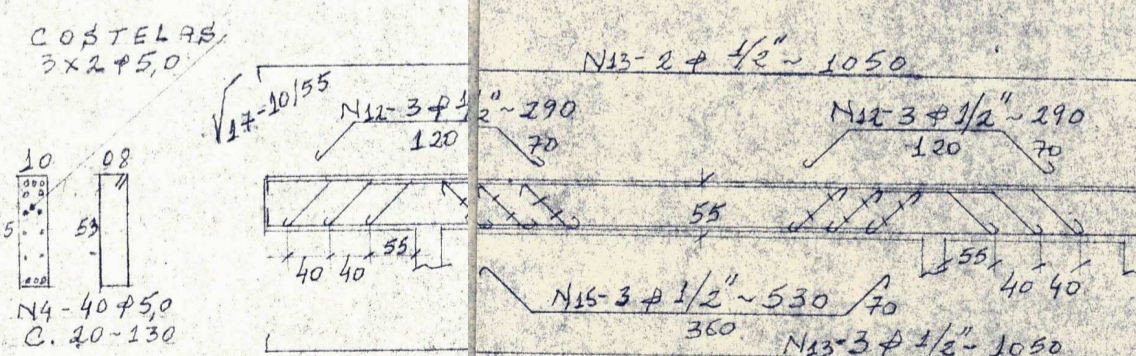 COSTELAS
3x2 φ5,0
N13-2 φ 1/2" ~ 1050
V17-10/55
N12-3 φ 1/2" ~ 290
120
70
N12-3 φ 1/2" ~ 290
120
70
10
08
5
53
55
55
55
40 40
40 40
N4-40 φ5,0
C. 20~130
N15-3 φ 1/2" ~ 530
70
360
N13-3 φ 1/2" ~ 1050